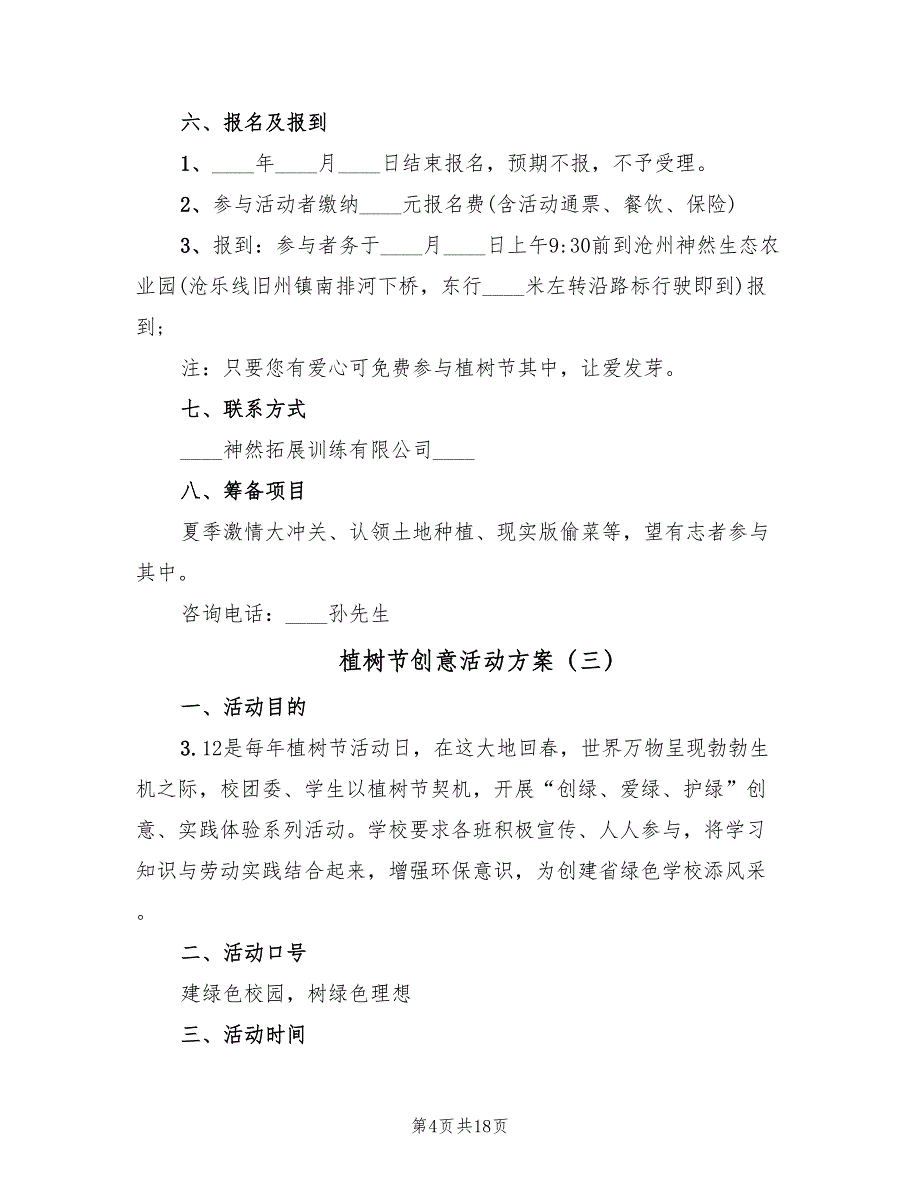 六、报名及报到
1、____年____月____日结束报名，预期不报，不予受理。
2、参与活动者缴纳____元报名费(含活动通票、餐饮、保险)
3、报到：参与者务于____月____日上午9:30前到沧州神然生态农
业园(沧乐线旧州镇南排河下桥，东行____米左转沿路标行驶即到)报
到;
注：只要您有爱心可免费参与植树节其中，让爱发芽。
七、联系方式
____神然拓展训练有限公司____
八、筹备项目
夏季激情大冲关、认领土地种植、现实版偷菜等，望有志者参与
其中。
咨询电话：____孙先生
植树节创意活动方案（三）
一、活动目的
3.12是每年植树节活动日，在这大地回春，世界万物呈现勃勃生
机之际，校团委、学生以植树节契机，开展“创绿、爱绿、护绿”创
意、实践体验系列活动。学校要求各班积极宣传、人人参与，将学习
知识与劳动实践结合起来，增强环保意识，为创建省绿色学校添风采
。
二、活动口号
建绿色校园，树绿色理想
三、活动时间
第4页共18页